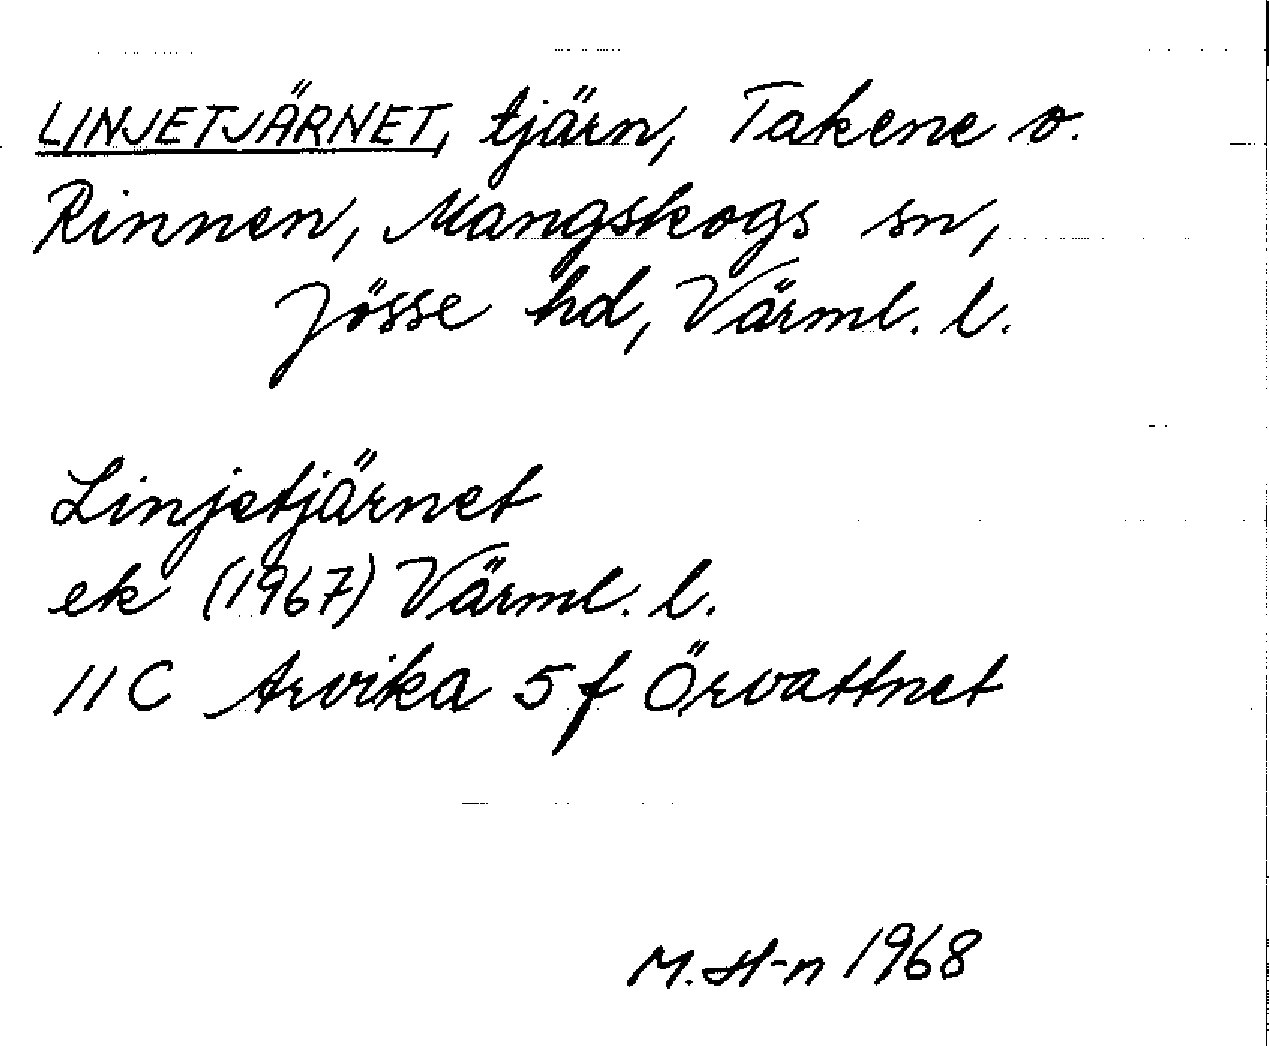 LINJETJÄRNET, tjärn, Takene o.
Rinnen, Mangskogs sn,
Jösse hd, Värml. l.
Linjetjärnet
ek (1967) Värml. l.
11 C Arvika 5 f Örvattnet
M. H-n 1968